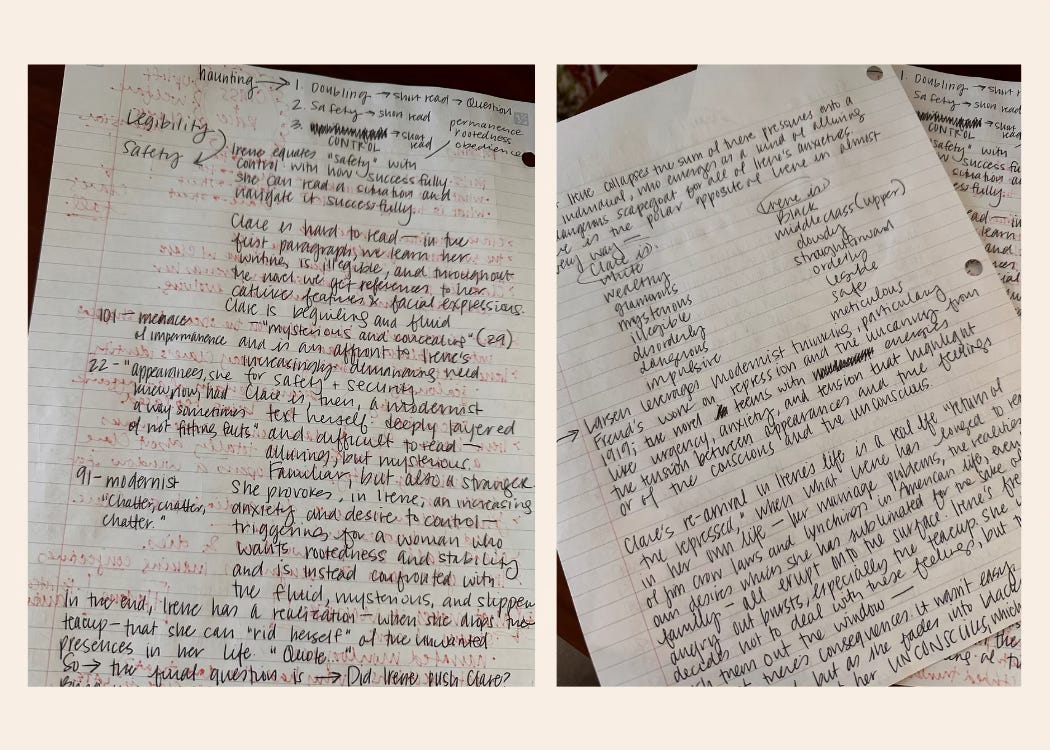 haunting → 1. Doubling → short read → Question
2. Safety → short read
3. CONTROL → short read
permanence
rootedness
obedience
Legibility
Safety
Irene equates "safety" with
control with how successfully
she can read a situation and
navigate it successfully.
Clare is hard to read — in the
first paragraph, we learn her
writing is illegible, and throughout
the novel we get references to her
catlike features & facial expressions.
Clare is beguiling and fluid
"mysterious and concealing" (29)
and is an affront to Irene's
increasingly diminishing need
for safety + security.
Clare is then, a modernist
text herself: deeply layered
and difficult to read —
alluring, but mysterious.
Familiar but also a stranger.
She provokes, in Irene, an increasing
anxiety and desire to control —
triggering for a woman who
wants rootedness and stability
and is instead confronted with
the fluid, mysterious, and slipper
101 — menace
of impermanence
22 - "appearances, she
knew now, had
a way sometimes
of not fitting facts"
91 - modernist
"Chatter, chatter,
chatter."
In the end, Irene has a realization — when she drops the
teacup — that she can "rid herself" of the unwanted
presences in her life. "Quote."
So → the final question is → Did Irene push Clare?
Irene collapses the sum of these pressures onto a
individual, who emerges as a kind of alluring
dangerous scapegoat for all of Irene's anxieties.
is the polar opposite of Irene in almost
very way —
Clare is:
white
wealthy
glamorous
mysterious
illegible
disorderly
dangerous
impulsive
Irene is:
Black
middle class (upper)
dowdy
straightforward
orderly
legible
safe
meticulous
→ Larsen leverages modernist thinking, particularly
Freud's work on repression and the uncanny from
1919; the novel teems with energies
like urgency, anxiety, and tension that highlight
the tension between appearances and the feelings
or of the conscious and the unconscious.
Clare's re-arrival in Irene's life is a real life "return of
the repressed," when what Irene has
in her own life — her marriage problems, the realities
of Jim Crow laws and lynchings in American life, even
own desires which she has sublimated for the sake of
family — all erupt onto the surface. Irene's
angry out bursts, especially the teacup. She
decides not to deal with these feelings, but
them out the window —
there's consequences. it wasn't easy
but as she fades into black
her UNCONSCIOUS, which
1. Doubling →
2. Safety → sh
3.
CONTROL